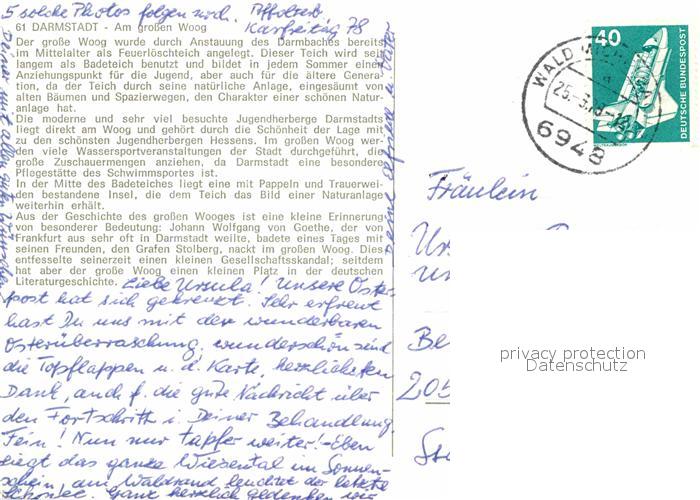 5 solche Photos folgen noch. Affolterb.
Karfreitag 78
61 DARMSTADT - Am großen Woog
Der große Woog wurde durch Anstauung des Darmbaches bereits
im Mittelalter als Feuerlöschteich angelegt. Dieser Teich wird seit
langem als Badeteich benutzt und bildet in jedem Sommer einen
Anziehungspunkt für die Jugend, aber auch für die ältere Genera-
tion, da der Teich durch seine natürliche Anlage, eingesäumt von
alten Bäumen und Spazierwegen, den Charakter einer schönen Natur-
anlage hat.
Die moderne und sehr viel besuchte Jugendherberge Darmstadts
liegt direkt am Woog und gehört durch die Schönheit der Lage mit
zu den schönsten Jugendherbergen Hessens. Im großen Woog wer-
den viele Wassersportveranstaltungen der Stadt durchgeführt, die
große Zuschauermengen anziehen, da Darmstadt eine besondere
Pflegestätte des Schwimmsportes ist.
In der Mitte des Badeteiches liegt eine mit Pappeln und Trauerwei-
den bestandene Insel, die dem Teich das Bild einer Naturanlage
weiterhin erhält.
Aus der Geschichte des großen Wooges ist eine kleine Erinnerung
von besonderer Bedeutung: Johann Wolfgang von Goethe, der von
Frankfurt aus sehr oft in Darmstadt weilte, badete eines Tages mit
seinen Freunden, den Grafen Stolberg, nackt im großen Woog. Dies
entfesselte seinerzeit einen kleinen Gesellschaftsskandal; seitdem
hat aber der große Woog einen kleinen Platz in der deutschen
Literaturgeschichte.
Liebe Ursula! Unsere Oster-
post hat sich gekreuzt. Sehr erfreut
hast Du uns mit der wunderbaren
Osterüberraschung, wunderschön sind
die Topflappen u. d. Karte, herzlichsten
Dank, auch f. die gute Nachricht über
den Fortschritt i. Deiner Behandlung.
Fein! Nun nur tapfer weiter! - Eben
liegt das ganze Wiesental im Sonnen-
schein, am Waldrand leuchtet der letzte
Schnee. Ganz herzlich gedenken wir
40
DEUTSCHE BUNDESPOST
WALD
25.-3.78-12
6948
Fräulein
Ur
un
Be
205
privacy protection
Datenschutz